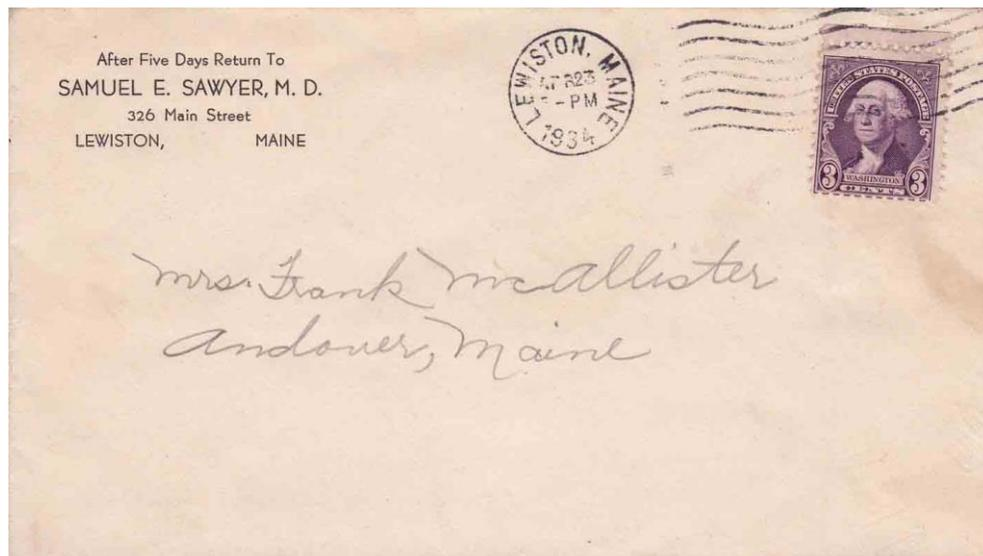 After Five Days Return To
SAMUEL E. SAWYER, M. D.
326 Main Street
LEWISTON, MAINE
LEWISTON, MAINE
APR 23
- PM
1934
UNITED STATES POSTAGE
WASHINGTON
3 3
CENTS
Mrs. Frank McAllister
Andover, Maine